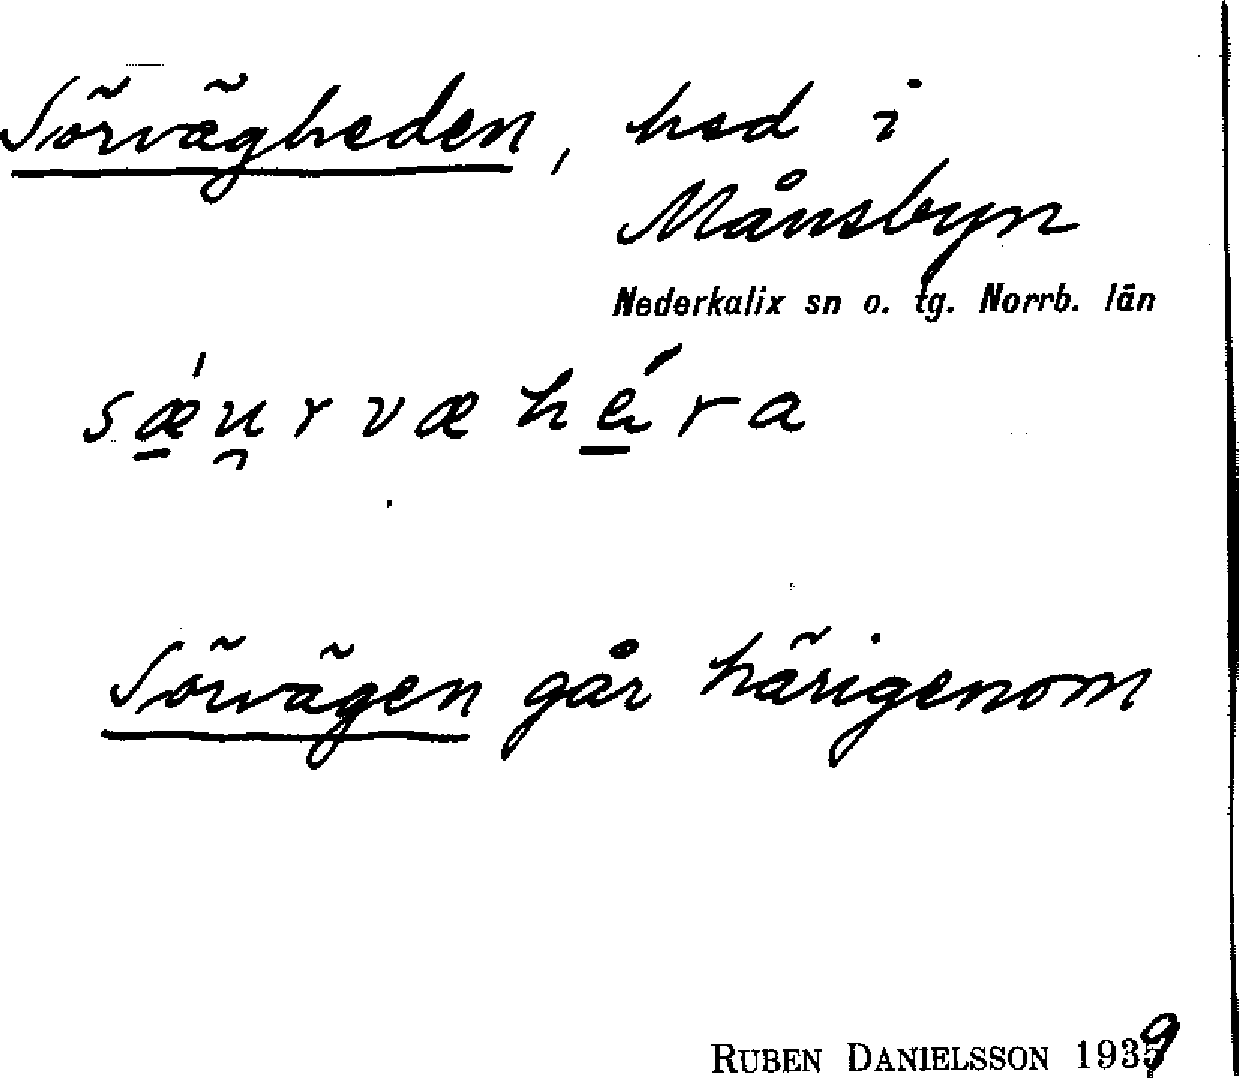 Sörvägheden, hed i
Månsbyn
Nederkalix sn o. tg. Norrb. län
sǽ̠u̯rvæhé̠ra
Sörvägen går härigenom
RUBEN DANIELSSON 1939